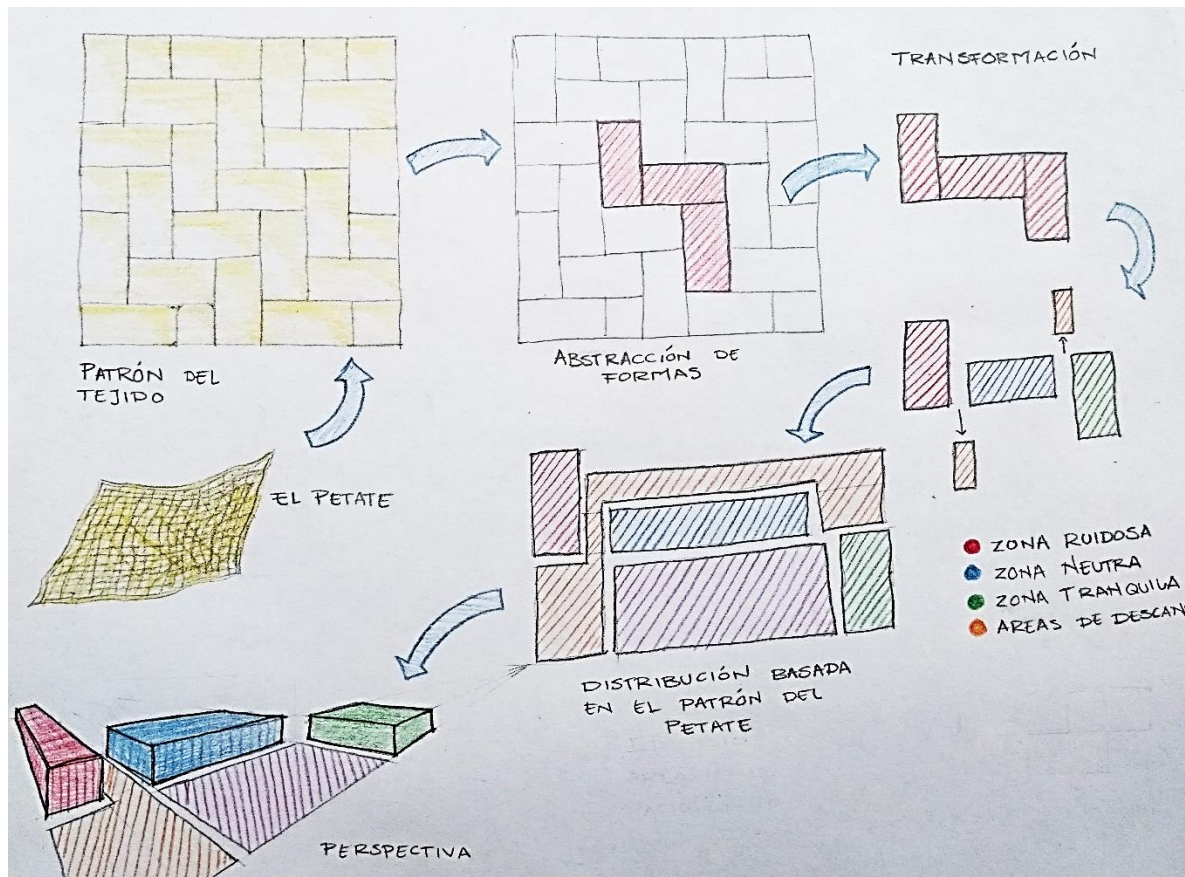 TRANSFORMACIÓN
PATRÓN DEL
TEJIDO
ABSTRACCIÓN DE
FORMAS
EL PETATE
ZONA RUIDOSA
ZONA NEUTRA
ZONA TRANQUILA
AREAS DE DESCAN
DISTRIBUCIÓN BASADA
EN EL PATRÓN DEL
PETATE
PERSPECTIVA